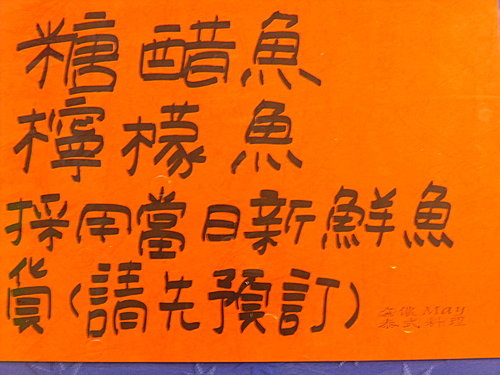 糖醋魚
檸檬魚
採用當日新鮮魚
貨(請先預訂)
May
泰式料理